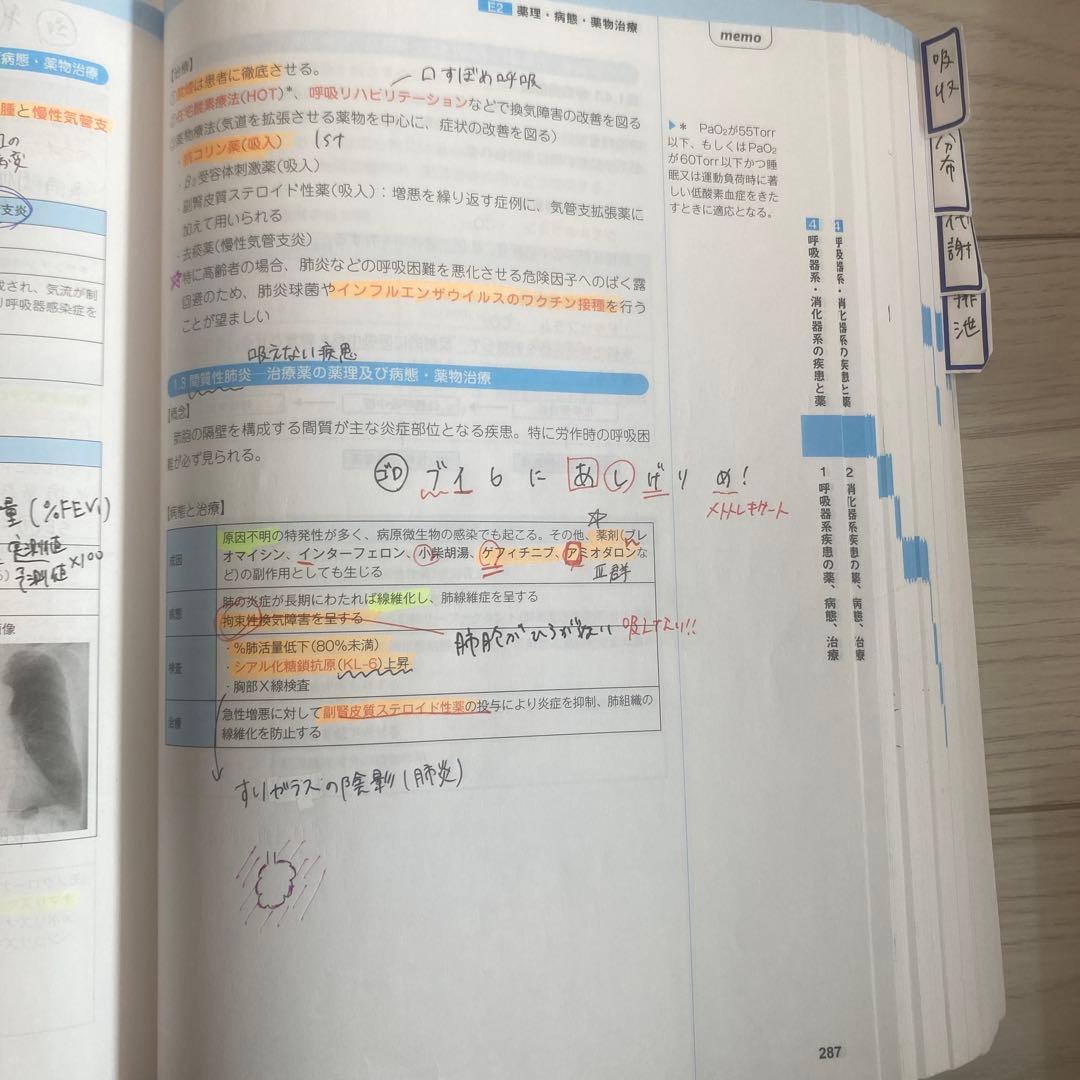 E2 薬理・病態・薬物治療
memo
【治療】
口すぼめ呼吸
禁煙は患者に徹底させる。
在宅酸素療法(HOT)*、呼吸リハビリテーションなどで換気障害の改善を図る
薬物療法(気道を拡張させる薬物を中心に、症状の改善を図る)
・抗コリン薬(吸入) 1st
・β₂受容体刺激薬(吸入)
・副腎皮質ステロイド性薬(吸入):増悪を繰り返す症例に、気管支拡張薬に
加えて用いられる
・去痰薬(慢性気管支炎)
特に高齢者の場合、肺炎などの呼吸困難を悪化させる危険因子へのばく露
回避のため、肺炎球菌やインフルエンザウイルスのワクチン接種を行う
ことが望ましい
▶* PaO₂が55Torr
以下、もしくはPaO₂
が60Torr以下かつ睡
眠又は運動負荷時に著
しい低酸素血症をきた
すときに適応となる。
吸えない疾患
1.3 間質性肺炎―治療薬の薬理及び病態・薬物治療
【概念】
肺胞の隔壁を構成する間質が主な炎症部位となる疾患。特に労作時の呼吸困
難が必ず見られる。
ゴロ ブイ6に あしげりめ!
メトトレキサート
【病態と治療】
成因
原因不明の特発性が多く、病原微生物の感染でも起こる。その他、薬剤(ブレ
オマイシン、インターフェロン、小柴胡湯、ゲフィチニブ、アミオダロンな
ど)の副作用としても生じる
Ⅲ群
病態
肺の炎症が長期にわたれば線維化し、肺線維症を呈する
拘束性換気障害を呈する
吸えない!!
検査
・%肺活量低下(80%未満)
・シアル化糖鎖抗原(KL-6)上昇
・胸部X線検査
治療
急性増悪に対して副腎皮質ステロイド性薬の投与により炎症を抑制、肺組織の
線維化を防止する
すりガラスの陰影(肺炎)
287
4 呼吸器系・消化器系の疾患と薬
1 呼吸器系疾患の薬、病態、治療
4 呼吸器系・消化器系の疾患と薬
2 消化器系疾患の薬、病態、治療
吸収
分布
代謝
排泄
病態・薬物治療
腫と慢性気管支
支炎
成され、気流が制
り呼吸器感染症を
量(%FEV₁)
実測値
予測値 ×100
画像